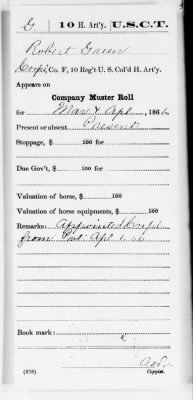 G | 10 H. Art'y. | U.S.C.T.
Robert Green
Corp'l, Co. F, 10 Reg't U. S. Col'd H. Art'y.
Appears on
Company Muster Roll
for Mar & Apl, 1866
Present or absent Present
Stoppage, $ 100 for
Due Gov't, $ 100 for
Valuation of horse, $ 100
Valuation of horse equipments, $ 100
Remarks: Appointed Corpl
from Pvt Apl 6. 66
Book mark:
(378)
Copyist.